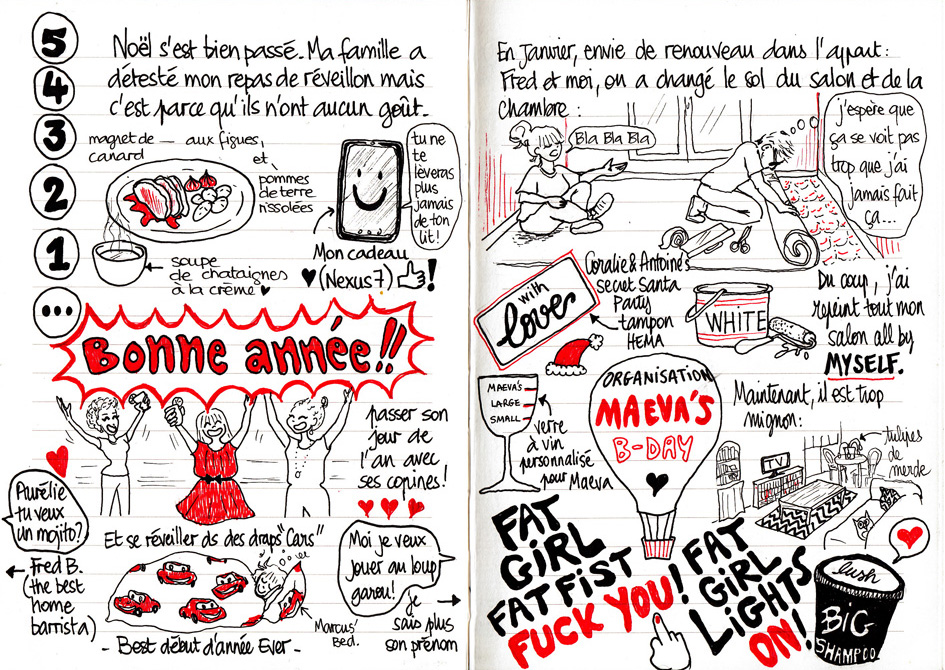 5
4
3
2
1
...
Noël s'est bien passé. Ma famille a
détesté mon repas de réveillon mais
c'est parce qu'ils n'ont aucun goût.
magnet de — aux figues,
canard
et
pommes
de terre
rissolées
soupe
de chataignes
à la crème ♥
tu ne
te
lèveras
plus
jamais
de ton
lit!
Mon cadeau
♥ (Nexus 7) !
Bonne année!!
passer son
jour de
l'an avec
ses copines!
Aurélie
tu veux
un mojito?
Fred B.
the best
home
barrista)
Et se réveiller ds des draps "Cars"
Moi je veux
jouer au loup
garou!
je
sais plus
son prénom
Marcus'
Bed.
- Best début d'année Ever -
En Janvier, envie de renouveau dans l'appart:
Fred et moi, on a changé le sol du salon et de la
chambre:
Bla Bla Bla
j'espère que
ça se voit pas
trop que j'ai
jamais fait
ça...
with
love
Coralie & Antoine's
secret Santa
Party
tampon
HEMA
WHITE
Du coup, j'ai
repeint tout mon
salon all by
MYSELF.
MAEVA'S
LARGE
SMALL
verre
à vin
personnalisé
pour Maeva
ORGANISATION
MAEVA'S
B-DAY
Maintenant, il est trop
mignon:
tulipes
de
merde
TV
FAT
GIRL
FAT FIST
FUCK YOU!
FAT
GIRL
LIGHTS
ON!
lush
BIG
SHAMPOO